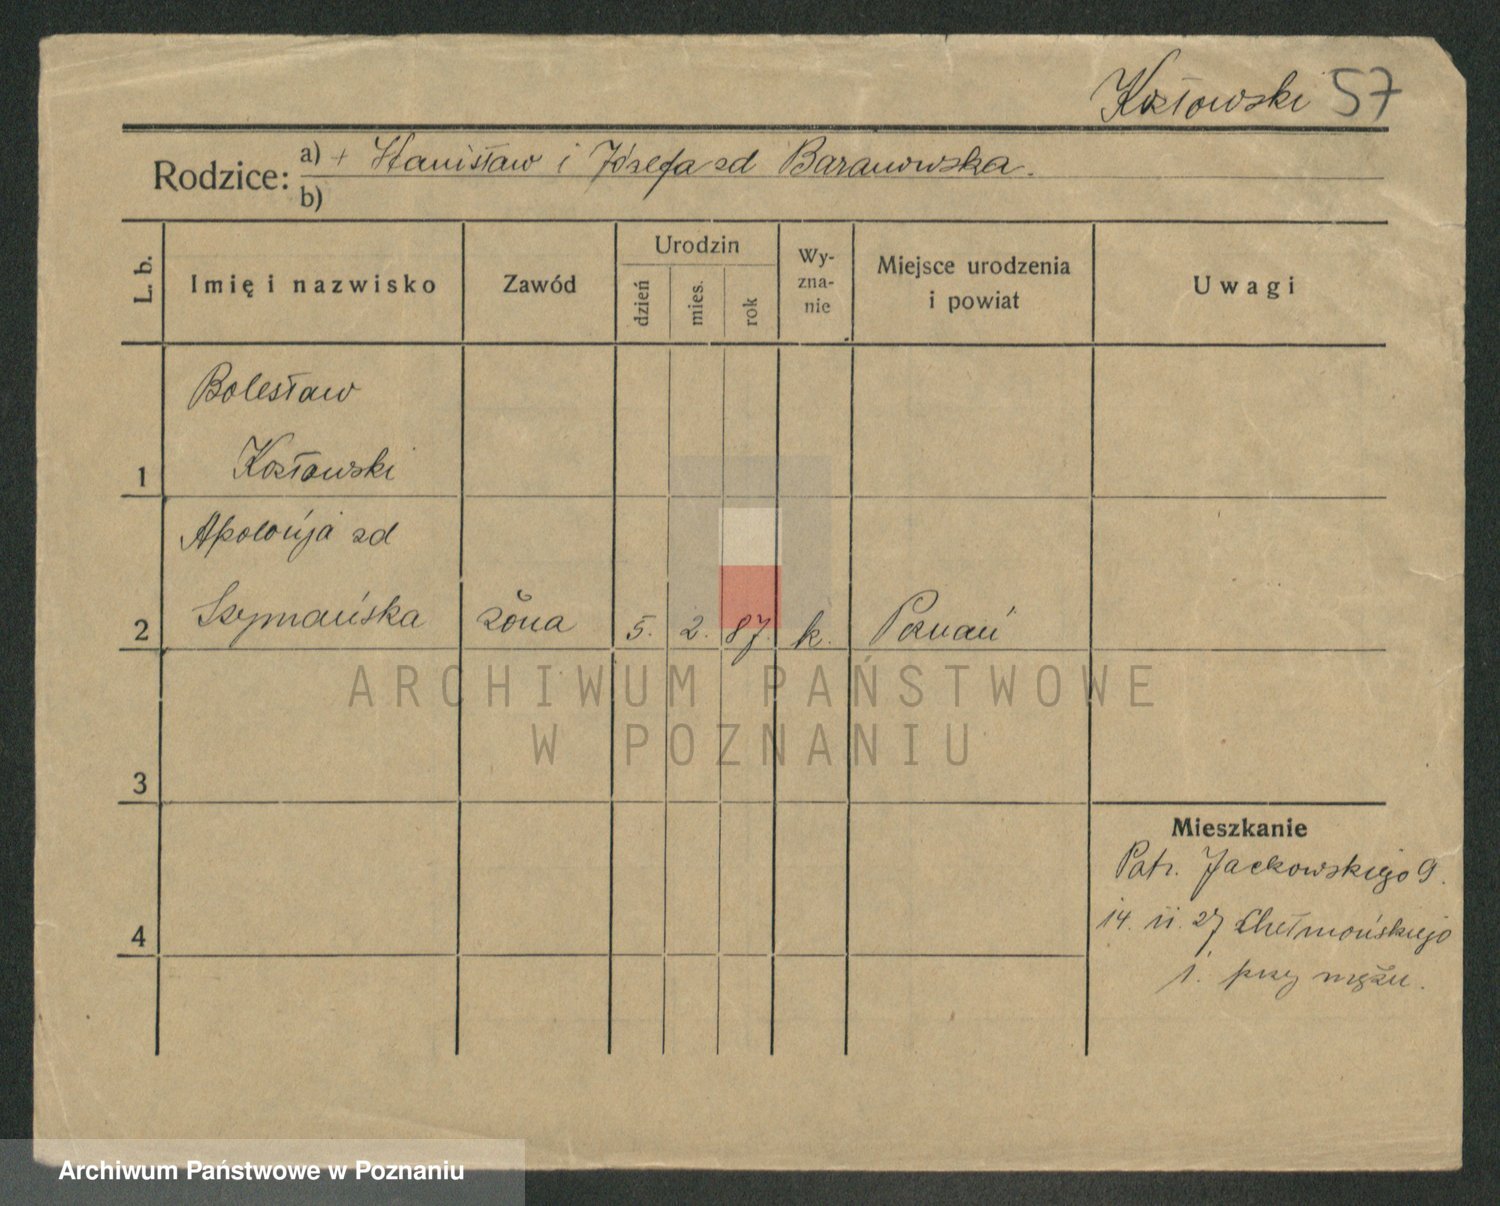 Kozłowski 57
Rodzice: a) + Stanisław i Józefa zd Baranowska.
b)
L. b.
Imię i nazwisko
Zawód
Urodzin
dzień
mies.
rok
Wy-
zna-
nie
Miejsce urodzenia
i powiat
Uwagi
Bolesław
1 Kozłowski
Apolonja zd
2 Szymańska żona 5. 2. 87. k. Poznań
ARCHIWUM PAŃSTWOWE
W POZNANIU
3
Mieszkanie
Patr. Jackowskiego 9.
14. 11. 27 Chełmońskiego
4
1. przy mężu.
Archiwum Państwowe w Poznaniu